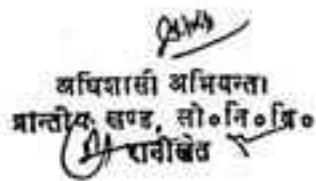 अधिशासी अभियन्ता
प्रान्तीय खण्ड, लो०नि०वि०
रानीखेत